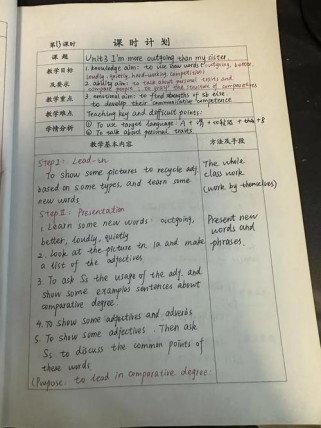 第13课时 课时计划
课题 Unit3 I'm more outgoing than my sister.
教学目标 1. knowledge aim: to use new words (outgoing, better,
loudly, quietly, hard-working, competition)
及要求 2. ability aim: to talk about personal traits and
compare people; to grasp the structure of comparatives
教学重点 3. emotional aim: to find strengths of sb else
to develop their communicative competence
教学难点 Teaching key and difficult points:
学情分析 ① To use target language: A + be + + than + B
② To talk about personal traits.
教学基本内容 方法及手段
Step I: Lead-in
To show some pictures to recycle adj
based on some types, and learn some
new words.
The whole
class work
(work by themselves)
Step II: Presentation
1. Learn some new words: outgoing,
better, loudly, quietly
2. Look at the picture in 1a and make
a list of the adjectives
3. To ask Ss the usage of the adj. and
show some examples sentences about
comparative degree.
4. To show some adjectives and adverbs
5. To show some adjectives. Then ask
Ss to discuss the common points of
these words.
(Purpose: to lead in comparative degree.
Present new
words and
phrases.